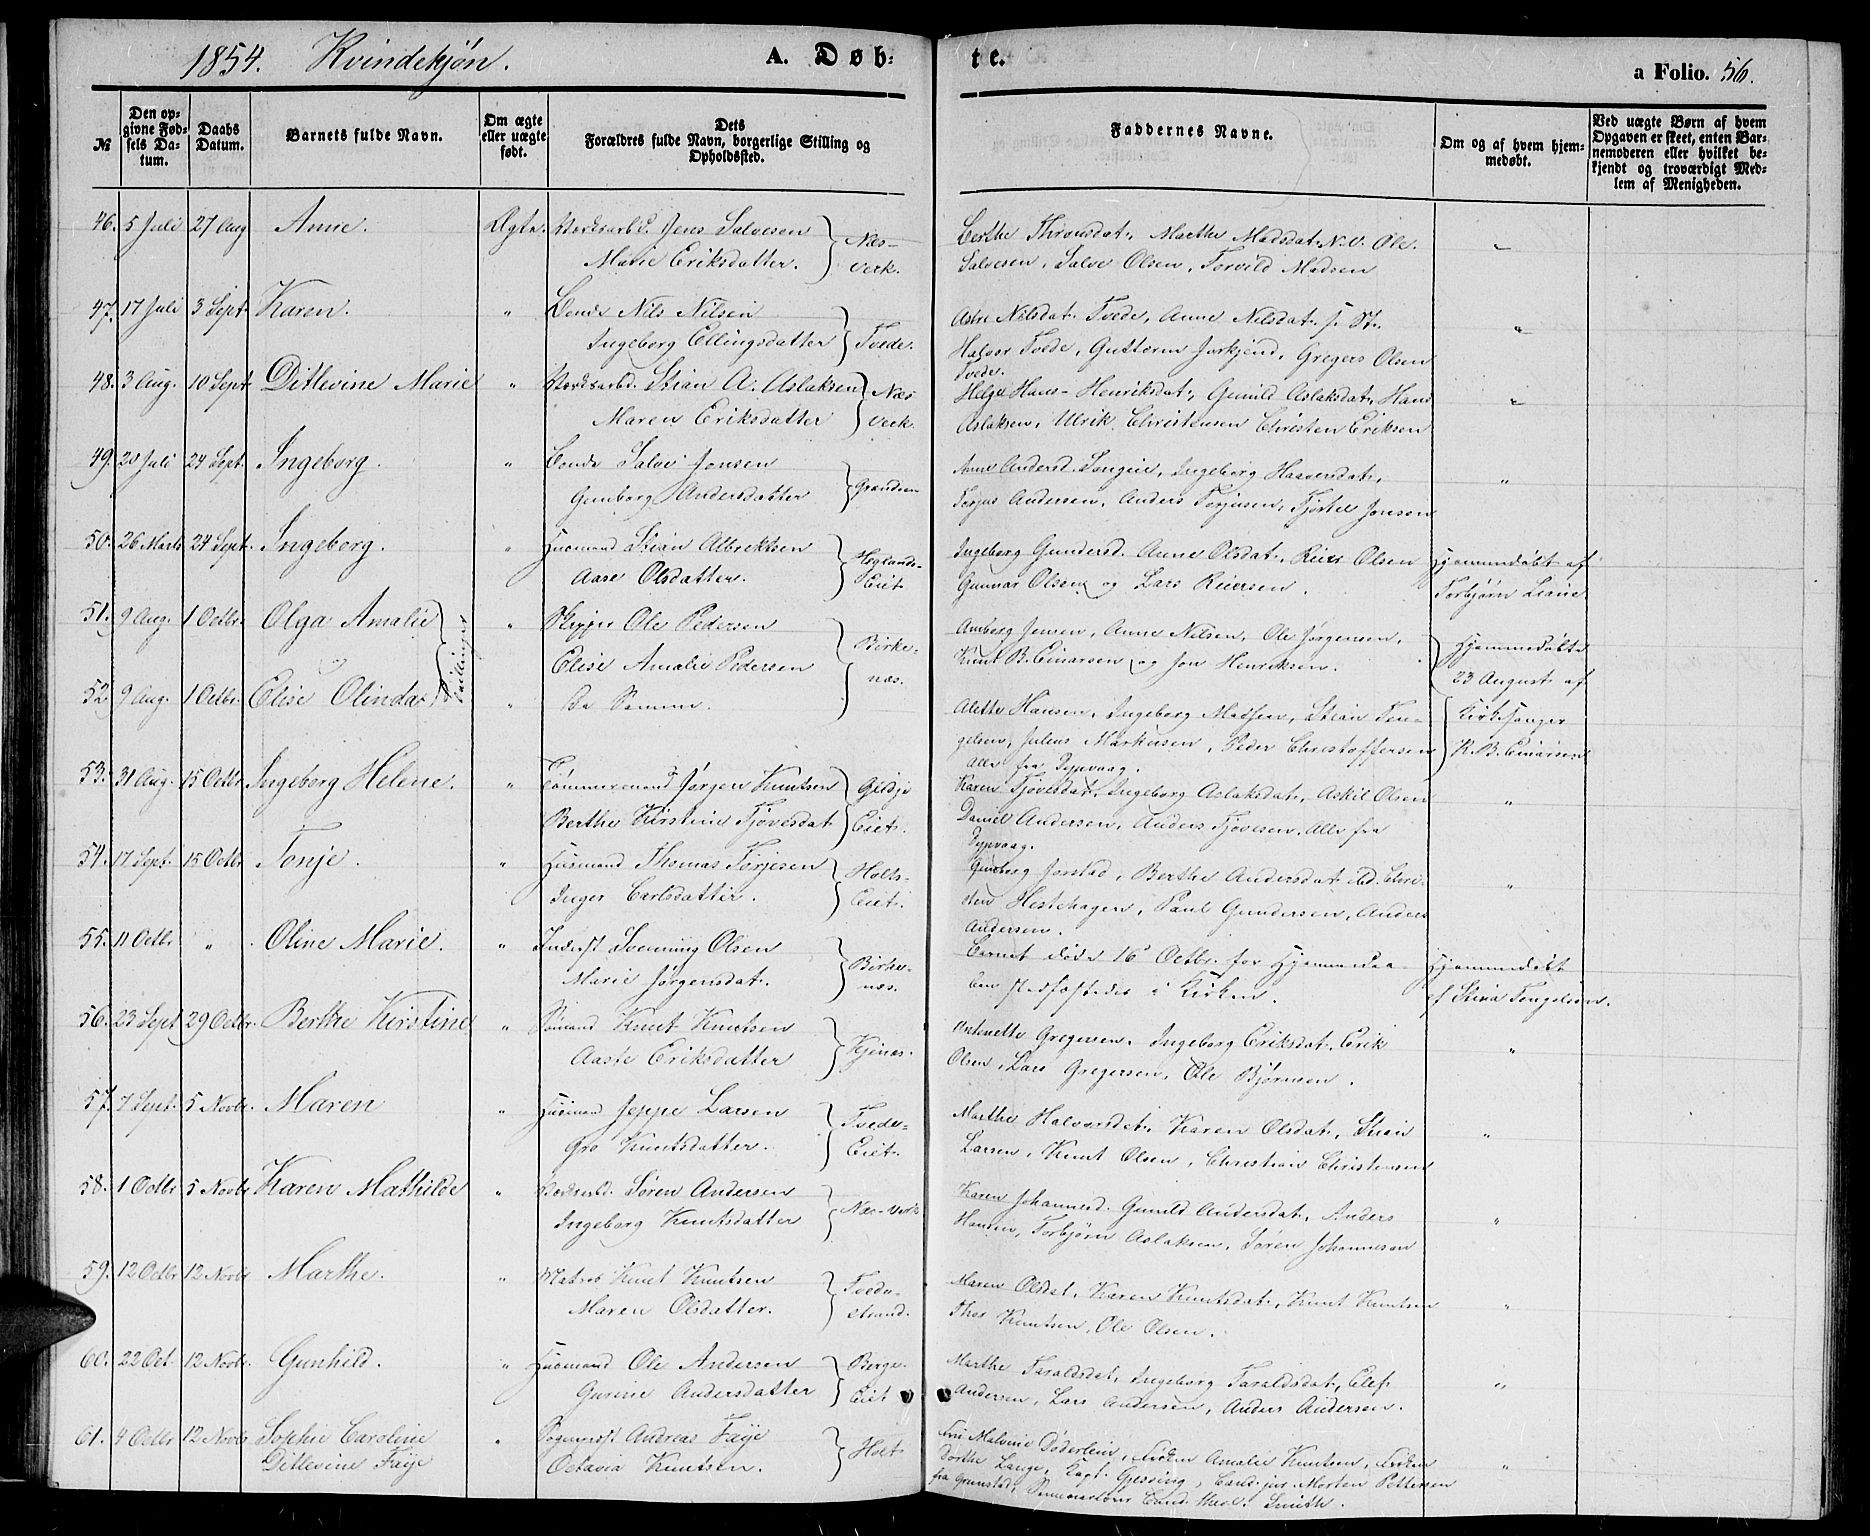 1854. Kvindekjøn. A. Døb-te. a Folio. 56.
№
Den opgivne Fødsels Datum.
Daabs Datum.
Barnets fulde Navn.
Om ægte eller uægte født.
Dets Forældres fulde Navn, borgerlige Stilling og Opholdssted.
Faddernes Navne.
Om og af hvem hjemmedøbt.
Ved uægte Børn af hvem Opgaven er skeet, enten Barnemoderen eller hvilket bekjendt og troværdigt Medlem af Menigheden.
46. 5 Juli 27 Aug Anne. Ægte. Værksarbd. Jens Salvesen Næs- Berthe Thronsdat., Marthe Madsdat. N.V. Ole "
Marie Eriksdatter. Verk. Salvesen, Salve Olsen, Torvild Madsen
47. 17 Juli 3 Sept. Karen. " Bonde Nils Nilsen Tvede. Astri Nilsdat. Tvede, Anne Nilsdat. "
Ingeborg Ellingsdatter Halvor Tvede, Guttorm Jorkjend, Gregers Olsen
Tvede.
48. 3 Aug. 10 Sept. Ditlevine Marie " Værksarbd. Stian A. Aslaksen Næs Helge Hans-Henriksdat., Gunild Aslaksdat., Hans "
Maren Eriksdatter Verk. Aslaksen, Ulrik Christensen Christen Eriksen
49. 20 Juli 24 Sept. Ingeborg. " Bonde Salve Jonsen Anne Andersd. Songeie, Ingeborg Haaversdat., "
Gunborg Andersdatter Torjus Andersen, Anders Torjusen, Tjøstel Jonsen
50. 26 Marts 24 Sept. Ingeborg. " Husmand Stian Albrektsen Ingeborg Gundersd. Anne Olsdat., Reier Olsen Hjemmedøbt af
Aase Olsdatter. Eiet Gunnar Olsen og Lars Reiersen. Torbjørn Liane
51. 9 Aug. 1 Octbr. Olga Amalie Tvillinger " Skipper Ole Pedersen Birke- Amborg Jensen, Anne Nilsen, Ole Jørgensen, Hjemmedøbt
Elise Amalie Pedersen næs. Knut B. Einarsen og Jon Henriksen. 23 August af
52 9 Aug. 1 Octbr. Elise Olinda " De Samme. Alette Hansen, Ingeborg Madsen, Stian Ten- Kirkesanger
gelsen, Julius Markusen, Peder Christoffersen K. B. Einarsen
Alle fra Dypvaag.
53. 31 Aug. 15 Octbr Ingeborg Helene. " Tømmermand Jørgen Knutsen Gjedje Karen Tjøvesdat., Ingeborg Aslaksdat., Askil Olsen "
Berthe Kirstine Tjøvesdat Eiet. Daniel Andersen, Anders Tjøvesen. Alle fra
Dypvaag.
54. 17 Sept. 15 Octbr Tonje. " Husmand Thomas Torjesen Holts- Gunborg Jorstad, Berthe Andersdat. Chri- "
Inger Carlsdatter. Eiet. sten Hestehagen, Paul Gundersen, Anders
Andersen.
55. 11 Octbr " Oline Marie. " Inderst Svenning Olsen Birke- Barnet døde 16 Octbr. før Hjemmedaa- Hjemmedøbt
Marie Jørgensdat. næs. ben stadfæstedes i Kirken. af Stina Tengelsen.
56. 23 Sept 29 Octbr. Berthe Kirstine " Sømand Knut Knutsen Kjenas. Antonette Gregersen. Ingeborg Eriksdat., Erik "
Aaste Eriksdatter Olsen, Lars Gregersen, Ole Bjørnsen.
57. 7 Sept. 5 Novbr. Maren " Husmand Jeppe Larsen Tvede- Marthe Halvorsdat., Karen Olsdat., Stian "
Gro Knutsdatter. Eiet. Larsen, Knut Olsen, Christian Christensen
58. 1 Octbr 5 Novbr Karen Mathilde " Værksarbd. Søren Andersen Næs-Verk Karen Johannesd. Gunild Andersdat., Anders "
Ingeborg Knutsdatter Hansen, Torbjørn Aslaksen, Søren Johannesen
59. 12 Octbr 12 Novbr Marthe. " Matros Knut Knutsen Tvede- Maren Olsdat, Karen Knutsdat., Knut Knutsen "
Maren Olsdatter. strand. Thos Knutsen, Ole Olsen.
60. 22 Oct. 12 Novbr. Gunhild. " Husmand Ole Andersen Berge- Marthe Taraldsdat, Ingeborg Taraldsdat., Elef "
Gurine Andersdatter Eiet Andersen, Lars Andersen, Anders Andersen.
61. 4 Octbr 12 Novbr Sophie Caroline " Sogneprest Andreas Faye Holt Fru Malvine Døderlein, Frøken Amalie Knutsen, Frøken "
Ditlevine Faye Octavia Knutsen. Dorthe Lange, Kapt. Gjessing, Cand. jur. Morten Pettersen
fra Grimstad, Cand. theol. Smith.